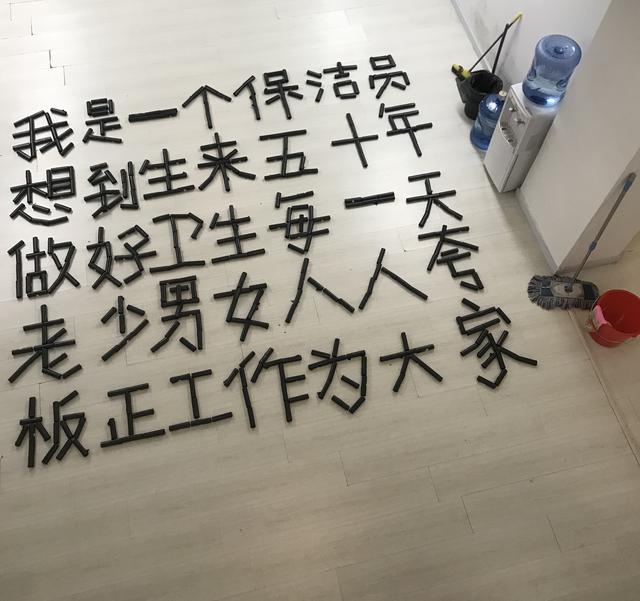 我是一个保洁员
想到生来五十年
做好卫生每一天
老少男女人人夸
板正工作为大家